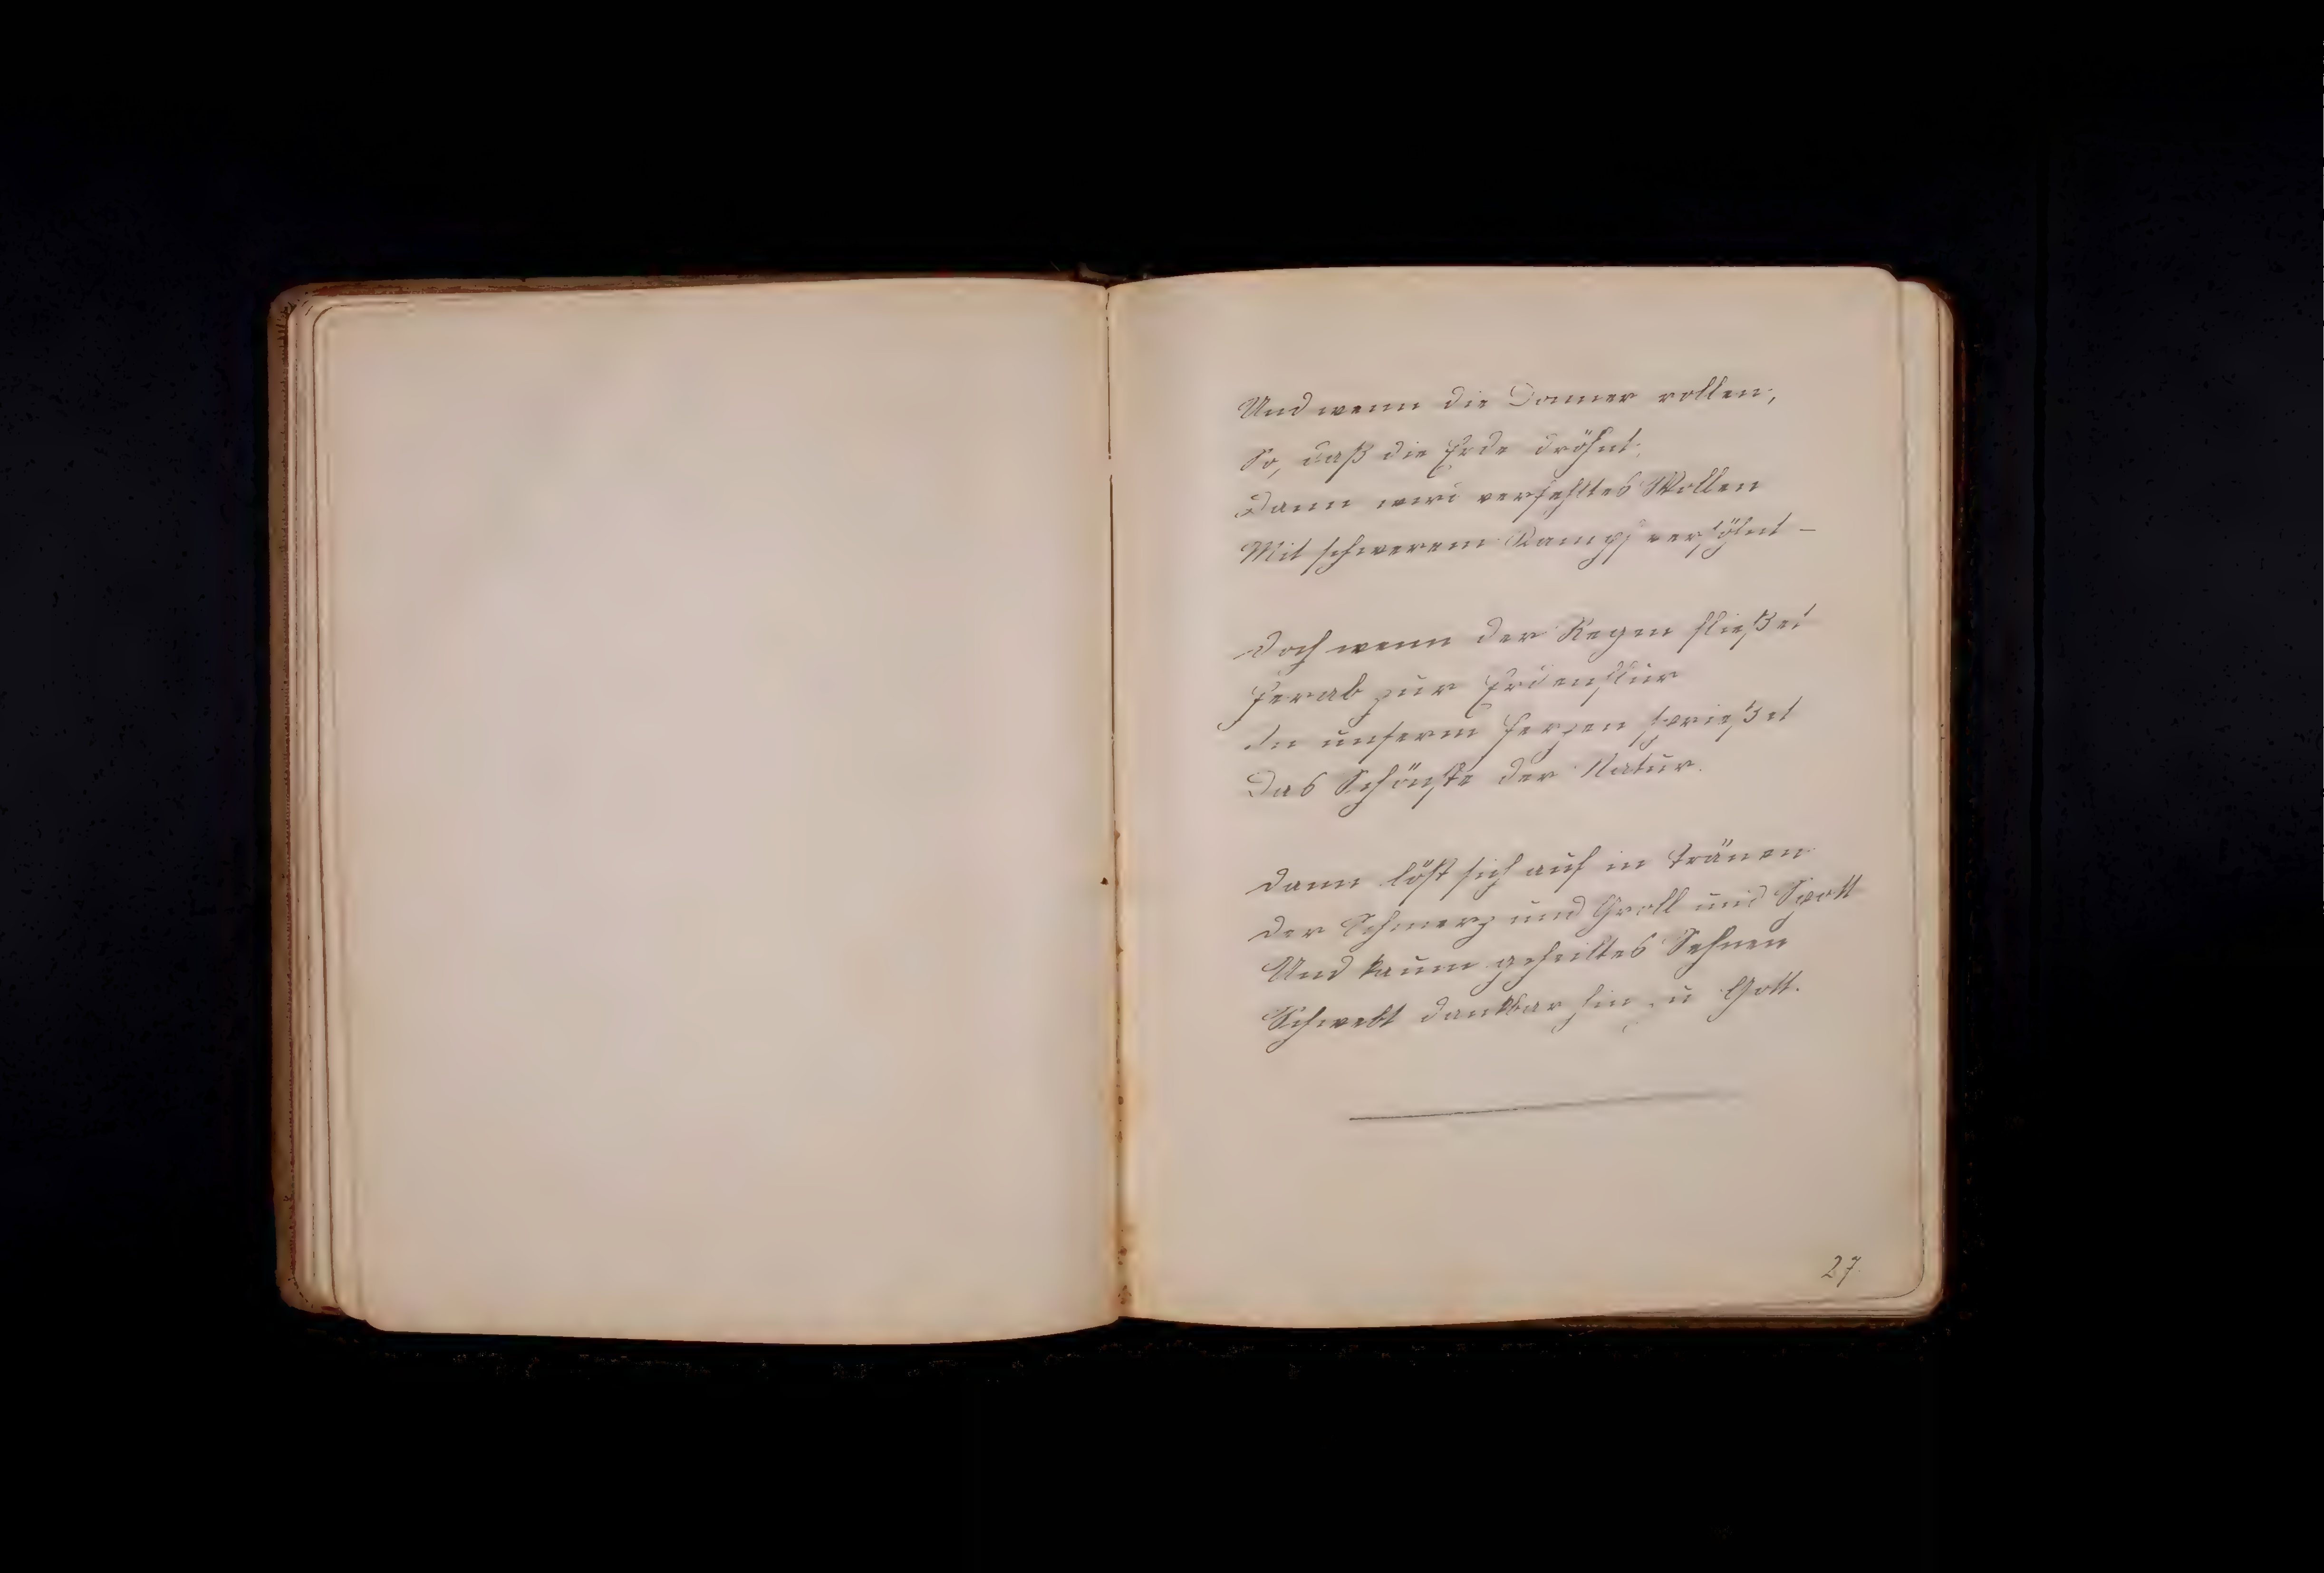 Und wenn die Donner rollen,
So, daß die Erde dröhnt,
Dann wird verfehltes Wollen
Mit schwerem Kampf versöhnt –
Doch wenn der Regen fließet
Herab zur Erdenflur
In unserm Herzen sprießet
Das Schönste der Natur.
Dann löst sich auf in Tränen
Der Schmerz und Groll und Spott
Und kaum geheiltes Sehnen
Schwebt dankbar hin zu Gott.
27